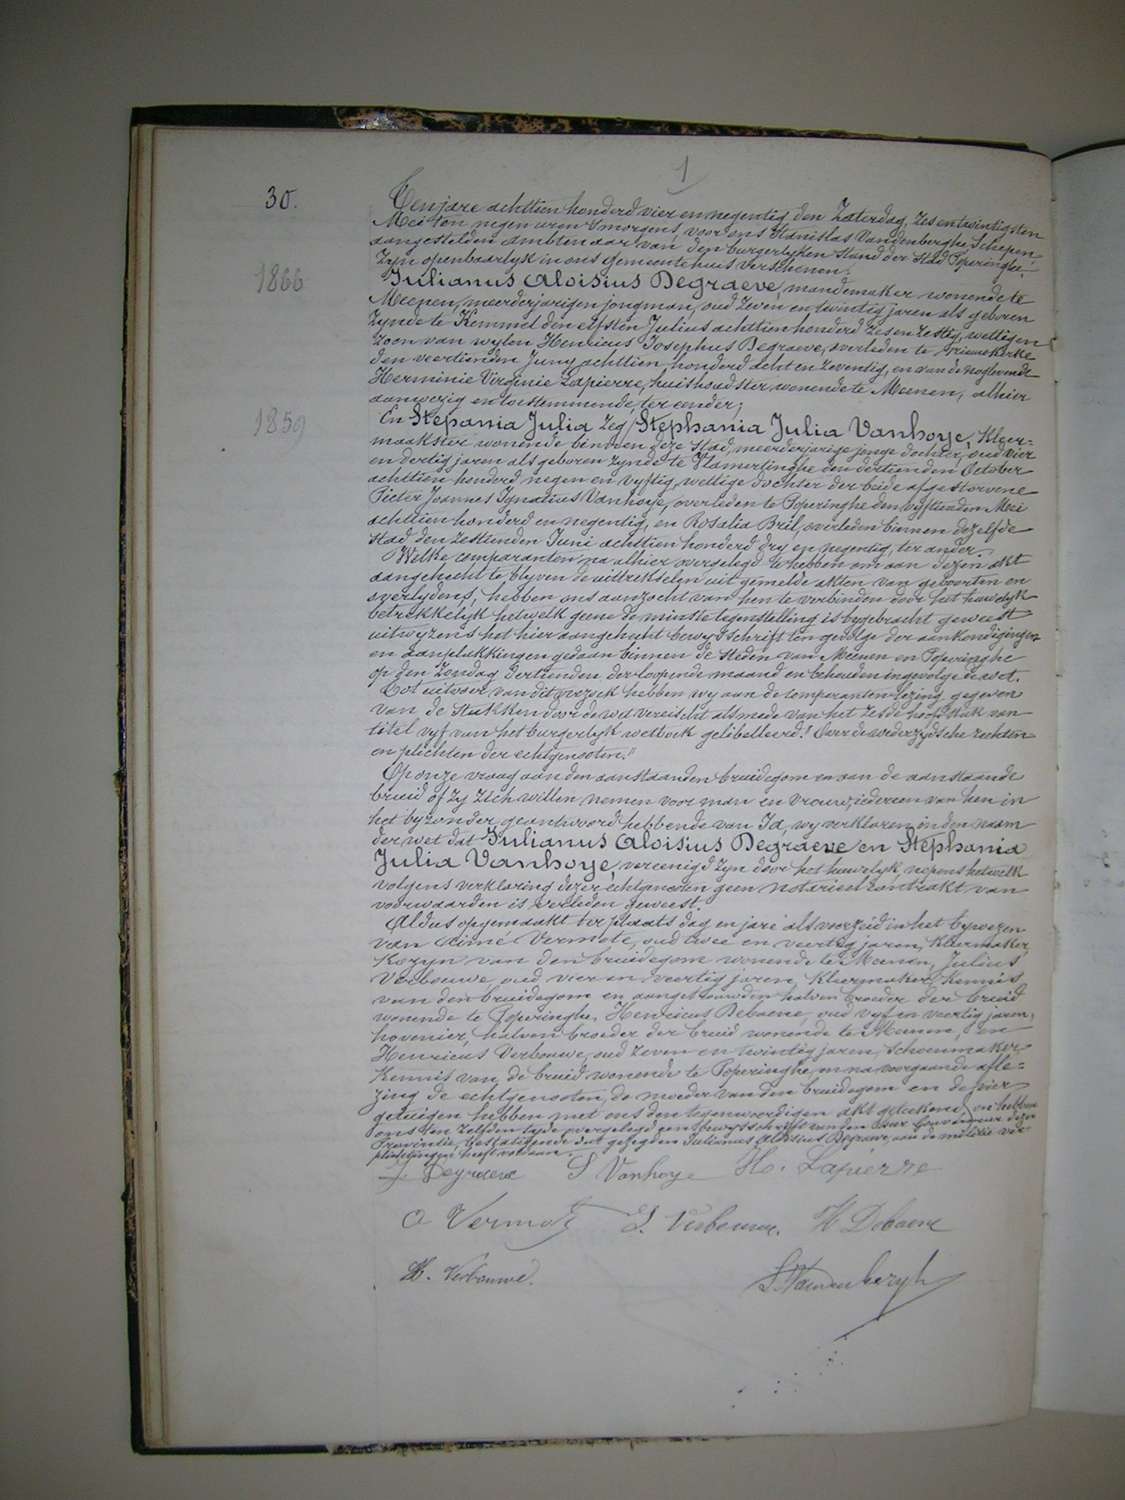 1
30.
Ten jare achttien honderd vier en negentig, den Zaterdag, zes en twintigsten
Mei ten negen uren 's morgens, voor ons Stanislas Vandenberghe, Schepen,
aangestelden ambtenaar van den burgerlyken stand der stad Poperinghe,
zyn openbaarlyk in ons gemeentehuis verschenen:
1866
Julianus Aloisius Degraeve, mandemaker wonende te
Meenen, meerderjarigen jongman, oud zeven en twintig jaren als geboren
zynde te Kemmel den elfsten Julius achttien honderd zes en zestig, wettigen
zoon van wylen Henricus Josephus Degraeve, overleden te
den veertienden Juny achttien honderd acht en zeventig, en van de nog levende
Herminie Virginie Lapierre, huishoudster wonende te Meenen, alhier
aanwezig en toestemmende, ter eender;
1859
En Stepania Julia zeg Stephania Julia Vanhoye, kleer-
maakster wonende binnen deze stad, meerderjarige jonge dochter, oud vier
en dertig jaren als geboren zynde te Vlamertinghe den dertienden October
achttien honderd negen en vyftig, wettige dochter der beide afgestorvene
Pieter Joannes Ignatius Vanhoye, overleden te Poperinghe den vyftienden Mei
achttien honderd en negentig, en Rosalia Bril, overleden binnen dezelfde
stad den zestienden Juni achttien honderd dry en negentig, ter ander.
Welke comparanten na alhier overgelegd te hebben om aan dezen akt
aangehecht te blyven de uittrekselen uit gemelde akten van geboorten en
overlydens, hebben ons aanzocht van hen te verbinden door het huwelyk
betrekkelyk hetwelk geene de minste tegenstelling is bygebracht geweest
uitwyzens het hier aangehecht bewysschrift ten gevolge der aankondigingen
en aanplakkingen gedaan binnen de steden van Meenen en Poperinghe
op den Zondag dertienden der loopende maand en behouden ingevolge de wet.
Tot uitvoer van dit verzoek hebben wy aan de comparanten lezing gegeven
van de stukken door de wet vereischt alsmede van het zesde hoofdstuk van
titel vyf van het burgerlyk wetboek gelibelleerd: "Over de wederzydsche rechten
en plichten der echtgenooten."
Op onze vraag aan den aanstaanden bruidegom en aan de aanstaande
bruid of zy zich willen nemen voor man en vrouw, iedereen van hen in
het byzonder geantwoord hebbende van Ja, wy verklaren in den naam
der wet dat Julianus Aloisius Degraeve en Stephania
Julia Vanhoye, vereenigd zyn door het huwelyk, nopens hetwelk
volgens verklaring dezer echtgenooten geen notarieel contrakt van
voorwaarden is verleden geweest.
Aldus opgemaakt ter plaats dag en jare als voorzeid in het bywezen
van Aimé Vermote, oud twee en veertig jaren, kleermaker,
kozyn van den bruidegom wonende te Meenen, Julius
Verbouwe, oud vier en veertig jaren, kleermaker, kennis
van den bruidegom en aangetrouwden halven broeder der bruid
wonende te Poperinghe, Henricus Debaene, oud vyf en veertig jaren,
hovenier, halven broeder der bruid wonende te Meenen, en
Henricus Verbouwe, oud zeven en twintig jaren, schoenmaker,
kennis van de bruid wonende te Poperinghe, en na voorgaande afle-
zing de echtgenooten, de moeder van den bruidegom en de vier
getuigen hebben met ons den tegenwoordigen akt geteekend, en hebben
ons ten zelfden tyde overgelegd een bewysschrift van den Heer Gouverneur dezer
Provintie, bestatigende dat gezegden Julianus Aloisius Degraeve, aan de militie ver-
plichtingen heeft voldaan.
J. Degraeve S Vanhoye H. Lapierre
A Vermote J. Verbouwe. H Debaene
H. Verbouwe. S. Vandenbergh